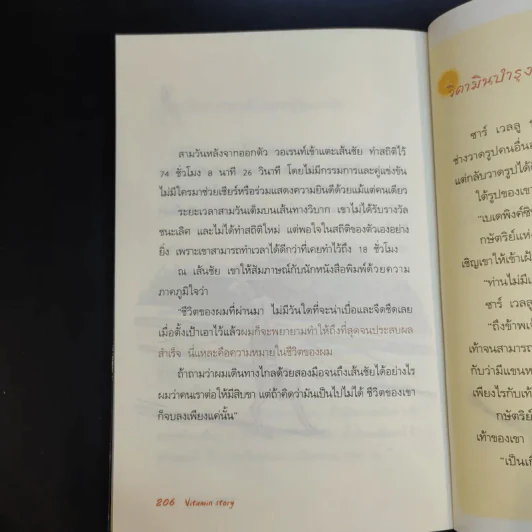 สามวันหลังจากออกตัว วอเรนท์เข้าแตะเส้นชัย ทำสถิติไว้
74 ชั่วโมง 8 นาที 26 วินาที โดยไม่มีกรรมการและคู่แข่งขัน
ไม่มีใครมาช่วยเชียร์หรือร่วมแสดงความยินดีด้วยแม้แต่คนเดียว
ระยะเวลาสามวันเต็มบนเส้นทางวิบาก เขาไม่ได้รับรางวัล
ชนะเลิศ และไม่ได้ทำสถิติใหม่ แต่พอใจในสถิติของตัวเองอย่าง
ยิ่ง เพราะเขาสามารถทำเวลาได้ดีกว่าที่เคยทำไว้ถึง 18 ชั่วโมง
ณ เส้นชัย เขาให้สัมภาษณ์กับนักหนังสือพิมพ์ด้วยความ
ภาคภูมิใจว่า
"ชีวิตของผมที่ผ่านมา ไม่มีวันใดที่จะน่าเบื่อและจืดชืดเลย
เมื่อตั้งเป้าเอาไว้แล้วผมก็จะพยายามทำให้ถึงที่สุดจนประสบผล
สำเร็จ นี่แหละคือความหมายในชีวิตของผม
ถ้าถามว่าผมเดินทางไกลด้วยสองมือจนถึงเส้นชัยได้อย่างไร
ผมว่าคนเราต่อให้มีสิบขา แต่ถ้าคิดว่ามันเป็นไปไม่ได้ ชีวิตของเขา
ก็จบลงเพียงแค่นั้น"
206 Vitamin story
วิตามินบำรุง
ซาร์ เวลลู
ช่างวาดรูปคนอื่น
แต่กลับวาดรูปได้
ใต้รูปของเขา
"เบเดพิงค์
กษัตริย์แห่ง
เชิญเขาให้เข้าเฝ้า
"ท่านไม่มี
ซาร์ เวลลู
"ถึงข้าพเ
เท้าจนสามารถ
กับว่ามีแขน
เพียงไรกับเท้
กษัตริย์
เท้าของเขา
"เป็นเ